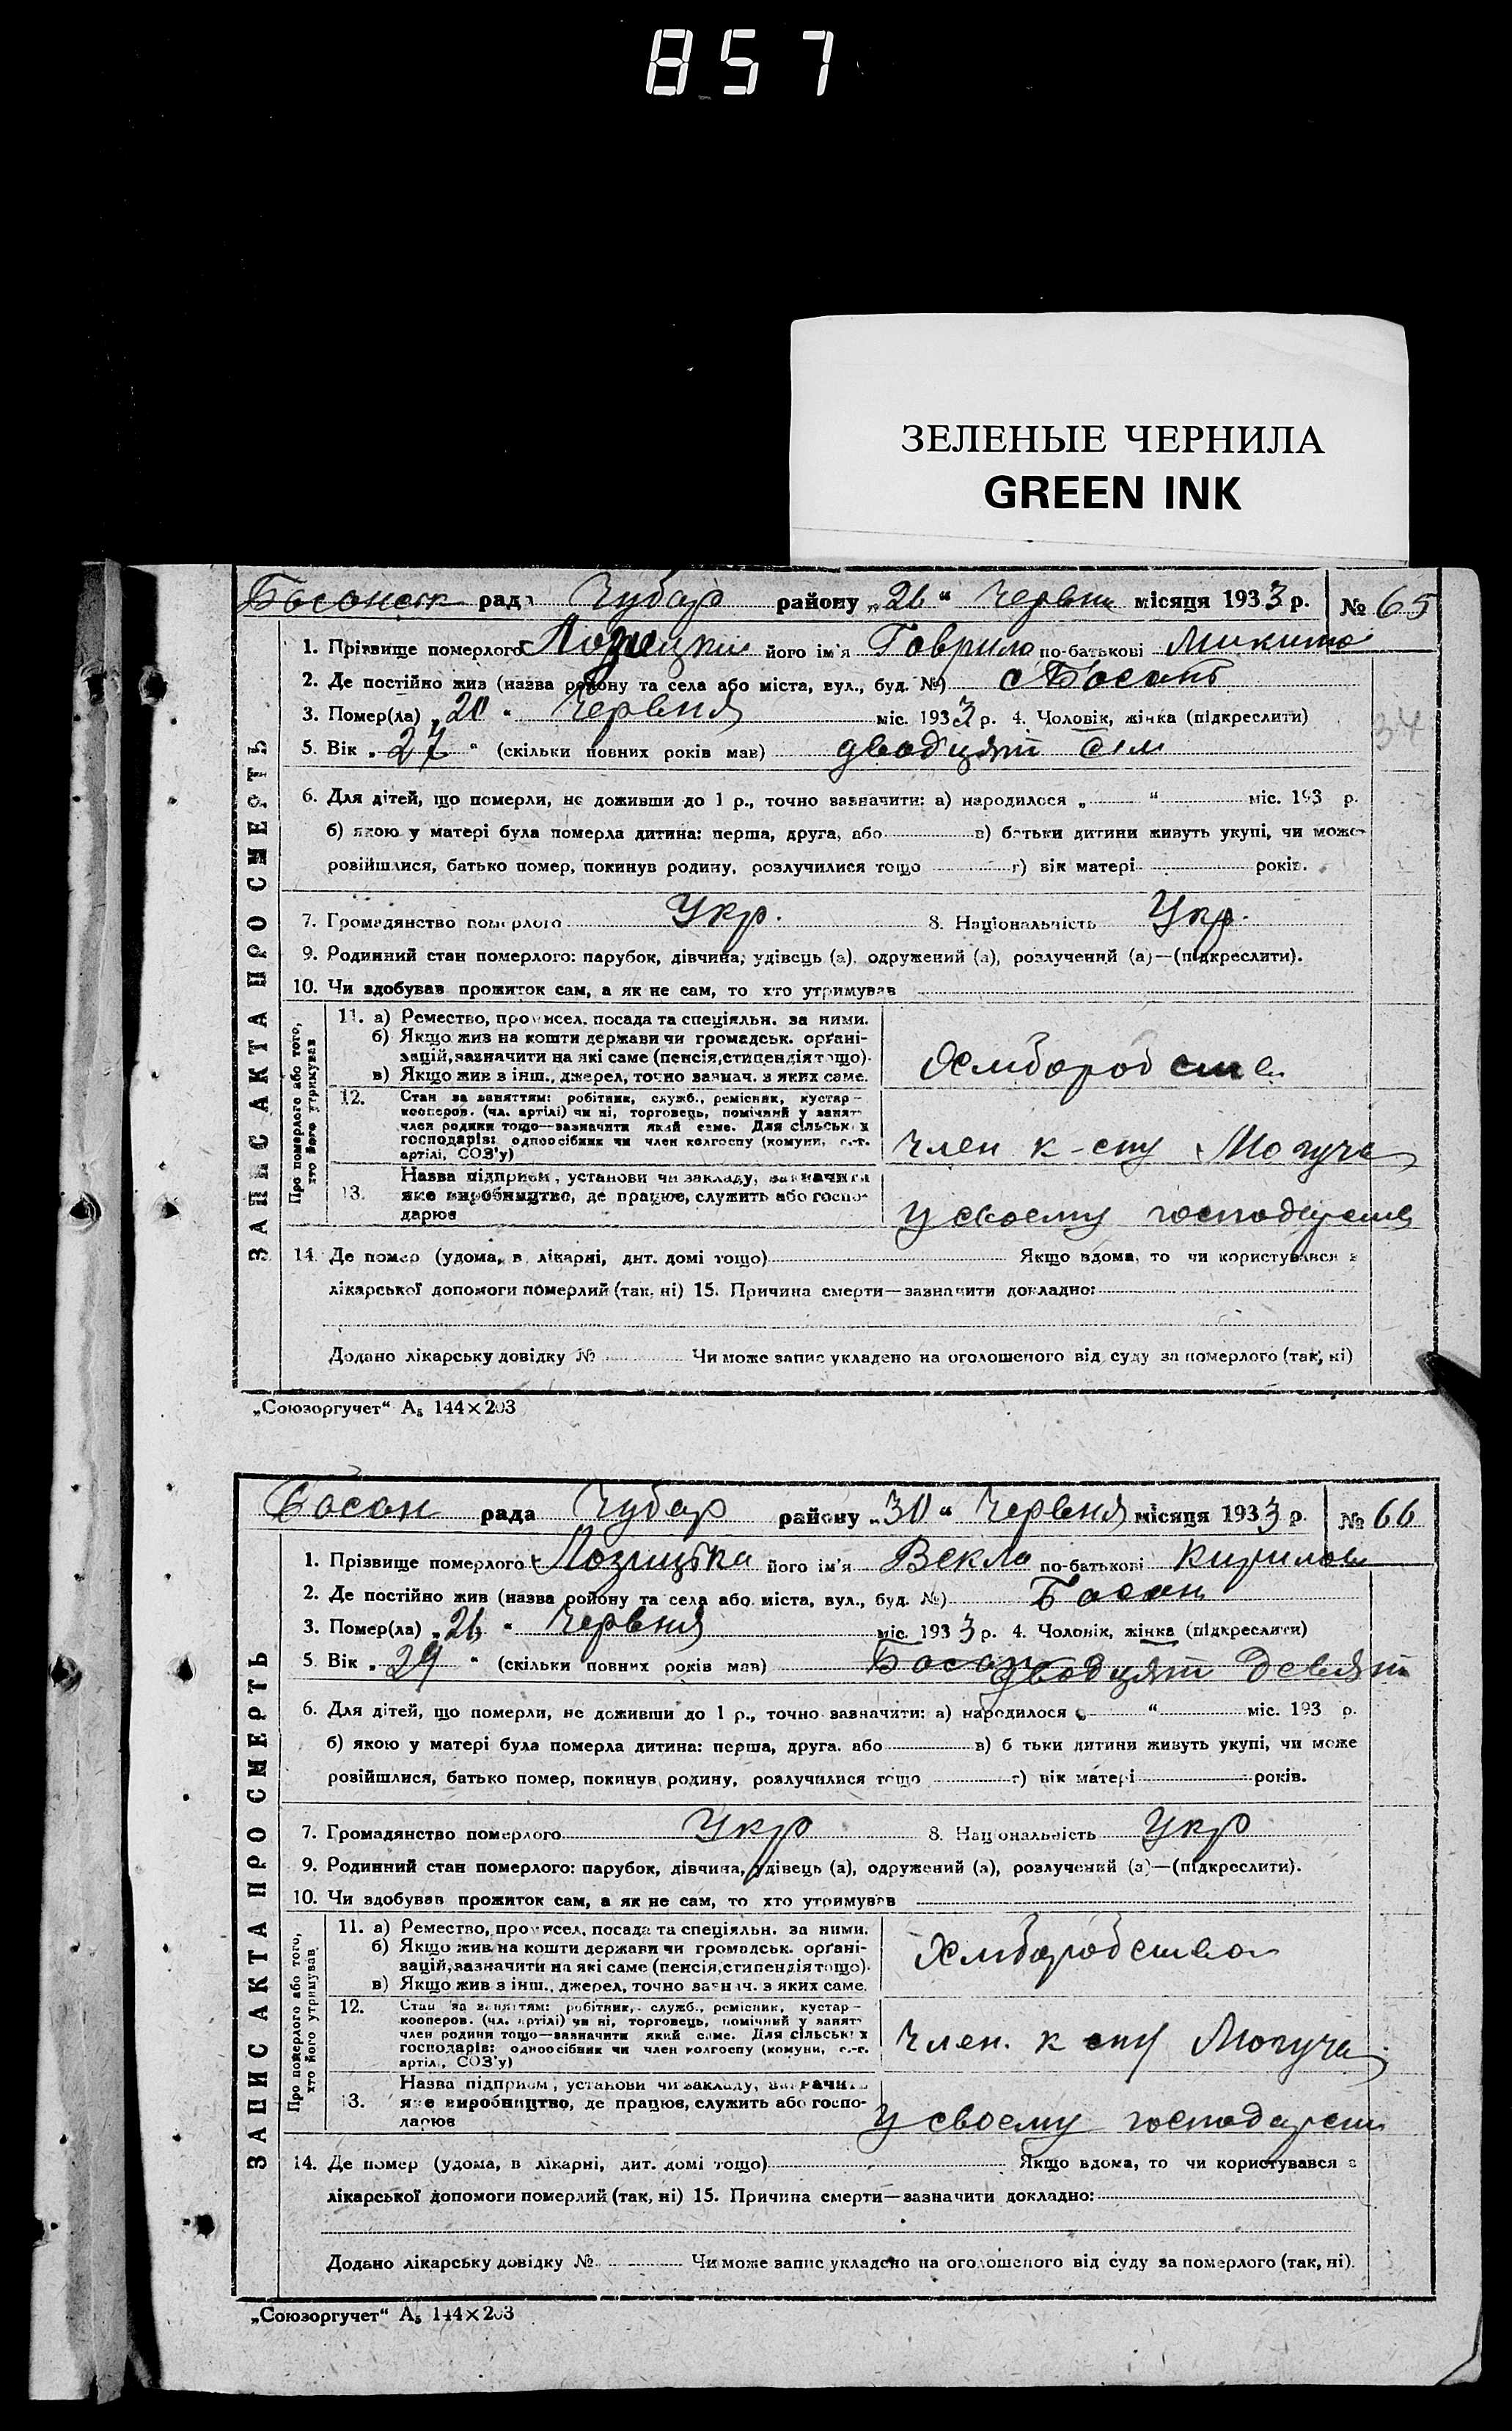 857
ЗЕЛЕНЫЕ ЧЕРНИЛА
GREEN INK
Басанск рада Чубар району „26“ Червня місяця 1933 р. № 65
1. Прізвище померлого його ім'я Гаврило по-батькові Микита
2. Де постійно жив (назва району та села або міста, вул., буд. №) с Басань
3. Помер(ла) „20“ Червня міс. 1933 р. 4. Чоловік, жінка (підкреслити)
34
5. Вік „27“ (скільки повних років мав) двадцять сім
6. Для дітей, що померли, не доживши до 1 р., точно зазначити: а) народилося „ “ міс. 193 р.
б) якою у матері була померла дитина: перша, друга, або в) батьки дитини живуть укупі, чи може
розійшлися, батько помер, покинув родину, розлучилися тощо г) вік матері років.
7. Громадянство померлого Укр. 8. Національність Укр.
9. Родинний стан померлого: парубок, дівчина, удівець (а), одружений (а), розлучений (а)—(підкреслити).
10. Чи здобував прожиток сам, а як не сам, то хто утримував
ЗАПИС АКТА ПРО СМЕРТЬ
Про померлого або того, хто його утримував
11. а) Ремество, промисел, посада та спеціяльн. за ними.
б) Якщо жив на кошти держави чи громадськ. орґані-
зацій, зазначити на які саме (пенсія, стипендія тощо).
в) Якщо жив з інш., джерел, точно зазнач. з яких саме.
Хлибороб
12. Стан за заняттям: робітник, служб., ремісник, кустар-
кооперов. (чл. артілі) чи ні, торговець, помічний у занят.
член родини тощо—зазначити який саме. Для сільських
господарів: одноосібник чи член колгоспу (комуни, с.-г.
артілі, СОЗ'у)
Член к-спу Могуча
13. Назва підприєм, установи чи закладу, зазначити
яке виробництво, де працює, служить або госпо-
дарює
у своему господарств
14. Де помер (удома, в лікарні, дит. домі тощо) Якщо вдома, то чи користувався з
лікарської допомоги померлий (так, ні) 15. Причина смерти—зазначити докладно:
Додано лікарську довідку № Чи може запис укладено на оголошеного від суду за померлого (так, ні)
„Союзоргучет“ А5 144×203
Басан рада Чубар району „30“ Червня місяця 1933 р. № 66
1. Прізвище померлого Лозицька його ім'я Векла по-батькові Кирилов
2. Де постійно жив (назва району та села або міста, вул., буд. №) Басан
3. Помер(ла) „26“ Червня міс. 1933 р. 4. Чоловік, жінка (підкреслити)
5. Вік „29“ (скільки повних років мав) Басан двадцят девят
6. Для дітей, що померли, не доживши до 1 р., точно зазначити: а) народилося „ “ міс. 193 р.
б) якою у матері була померла дитина: перша, друга. або в) б тьки дитини живуть укупі, чи може
розійшлися, батько помер, покинув родину, розлучилися тощо г) вік матері років.
7. Громадянство померлого Укр 8. Національність Укр
9. Родинний стан померлого: парубок, дівчина, удівець (а), одружений (а), розлучений (а)—(підкреслити).
10. Чи здобував прожиток сам, а як не сам, то хто утримував
ЗАПИС АКТА ПРО СМЕРТЬ
Про померлого або того, хто його утримував
11. а) Ремество, промисел, посада та спеціяльн. за ними.
б) Якщо жив на кошти держави чи громадськ. орґані-
зацій, зазначити на які саме (пенсія, стипендія тощо).
в) Якщо жив з інш., джерел, точно зазнач. з яких саме.
Хлиборобство
12. Стан за заняттям: робітник, служб., ремісник, кустар-
кооперов. (чл. артілі) чи ні, торговець, помічний у занят.
член родини тощо—зазначити який саме. Для сільських
господарів: одноосібник чи член колгоспу (комуни, с.-г.
артілі, СОЗ'у)
Член. к спу Могуча
13. Назва підприєм, установи чи закладу, зазначить
яке виробництво, де працює, служить або госпо-
дарює
у своему господарст
14. Де помер (удома, в лікарні, дит. домі тощо) Якщо вдома, то чи користувався з
лікарської допомоги померлий (так, ні) 15. Причина смерти—зазначити докладно:
Додано лікарську довідку № Чи може запис укладено на оголошеного від суду за померлого (так, ні).
„Союзоргучет“ А5 144×203